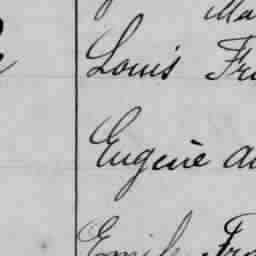 Ma
Louis Fr
Eugène Au
Emile Fra